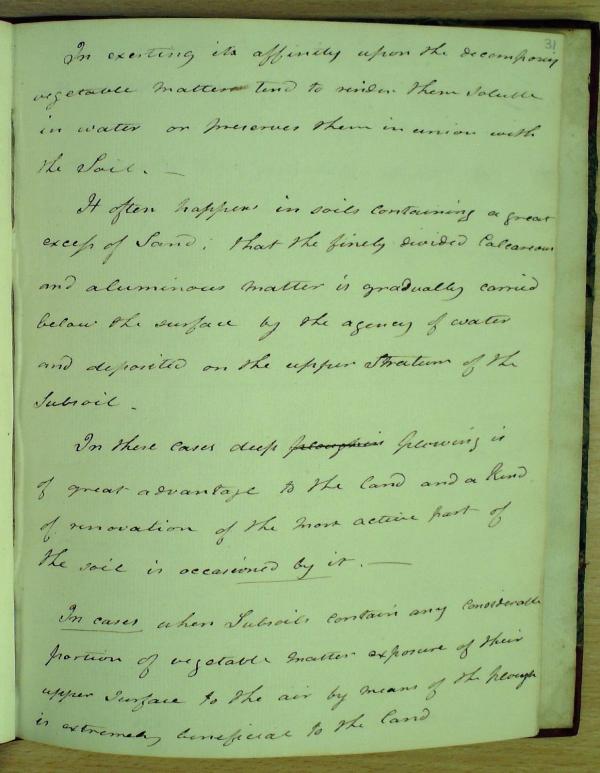 31
In exerting its affinity upon the decomposing
vegetable matters tend to render them soluble
in water or preserves them in union with
the Soil. —
It often happens in soils containing a great
excess of Sand; that the finely divided Calcareous
and aluminous matter is gradually carried
below the surface by the agency of water
and deposited on the upper Stratum of the
Subsoil -
In these cases deep ploughin plowing is
of great advantage to the land and a kind
of renovation of the most active part of
the soil is occasioned by it. —
In cases when Subsoils contain any considerable
portion of vegetable matter exposure of their
upper surface to the air by means of the plough
is extremely beneficial to the land